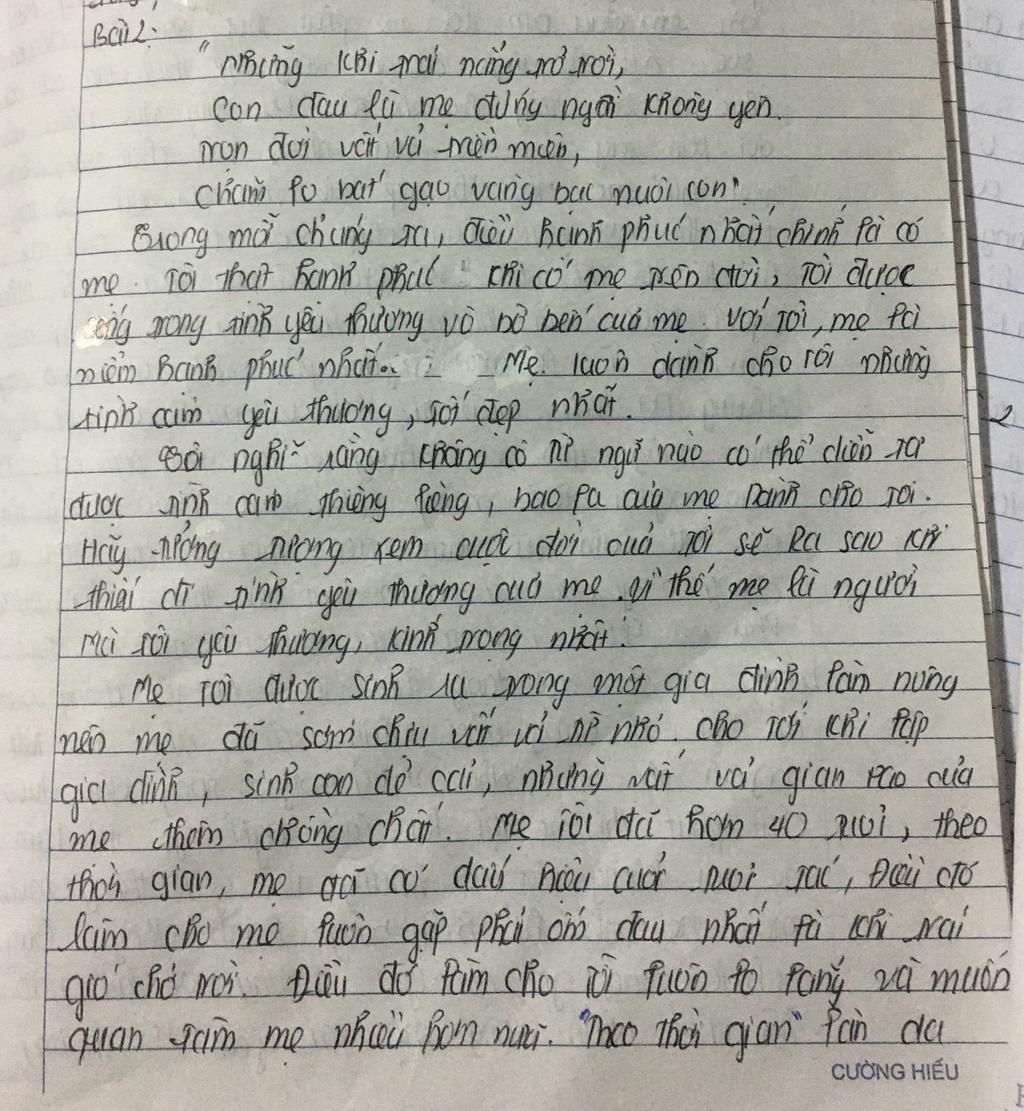 Bài 2:
"Những khi trái nắng trở trời,
Con đau là mẹ đứng ngồi không yên.
Trọn đời vất vả triền miên,
Chăm lo bát gạo vàng bạc nuôi con".
Trong mỗi chúng ta, điều hạnh phúc nhất chính là có
mẹ. Tôi thật hạnh phúc khi có mẹ trên đời, tôi được
sống trong tình yêu thương vô bờ bến của mẹ. Với tôi, mẹ là
niềm hạnh phúc nhất. Mẹ luôn dành cho tôi những
tình cảm yêu thương, tốt đẹp nhất.
Tôi nghĩ rằng không có từ ngữ nào có thể diễn tả
được tình cảm thiêng liêng, bao la của mẹ dành cho tôi.
Hãy tưởng tượng xem cuộc đời của tôi sẽ ra sao khi
thiếu đi tình yêu thương của mẹ. Vì thế mẹ là người
mà tôi yêu thương, kính trọng nhất.
Mẹ tôi được sinh ra trong một gia đình làm nông
nên mẹ đã sớm chịu vất vả từ nhỏ. Cho tới khi lập
gia đình, sinh con đẻ cái, những vất vả gian lao của
mẹ thêm chồng chất. Mẹ tôi đã hơn 40 tuổi, theo
thời gian, mẹ đã có dấu hiệu của tuổi tác, Điều đó
làm cho mẹ luôn gặp phải ốm đau nhất là khi trái
gió chở trời. Điều đó làm cho tôi luôn lo lắng và muốn
quan tâm mẹ nhiều hơn nữa. "Theo thời gian" làn da
CƯỜNG HIẾU
2